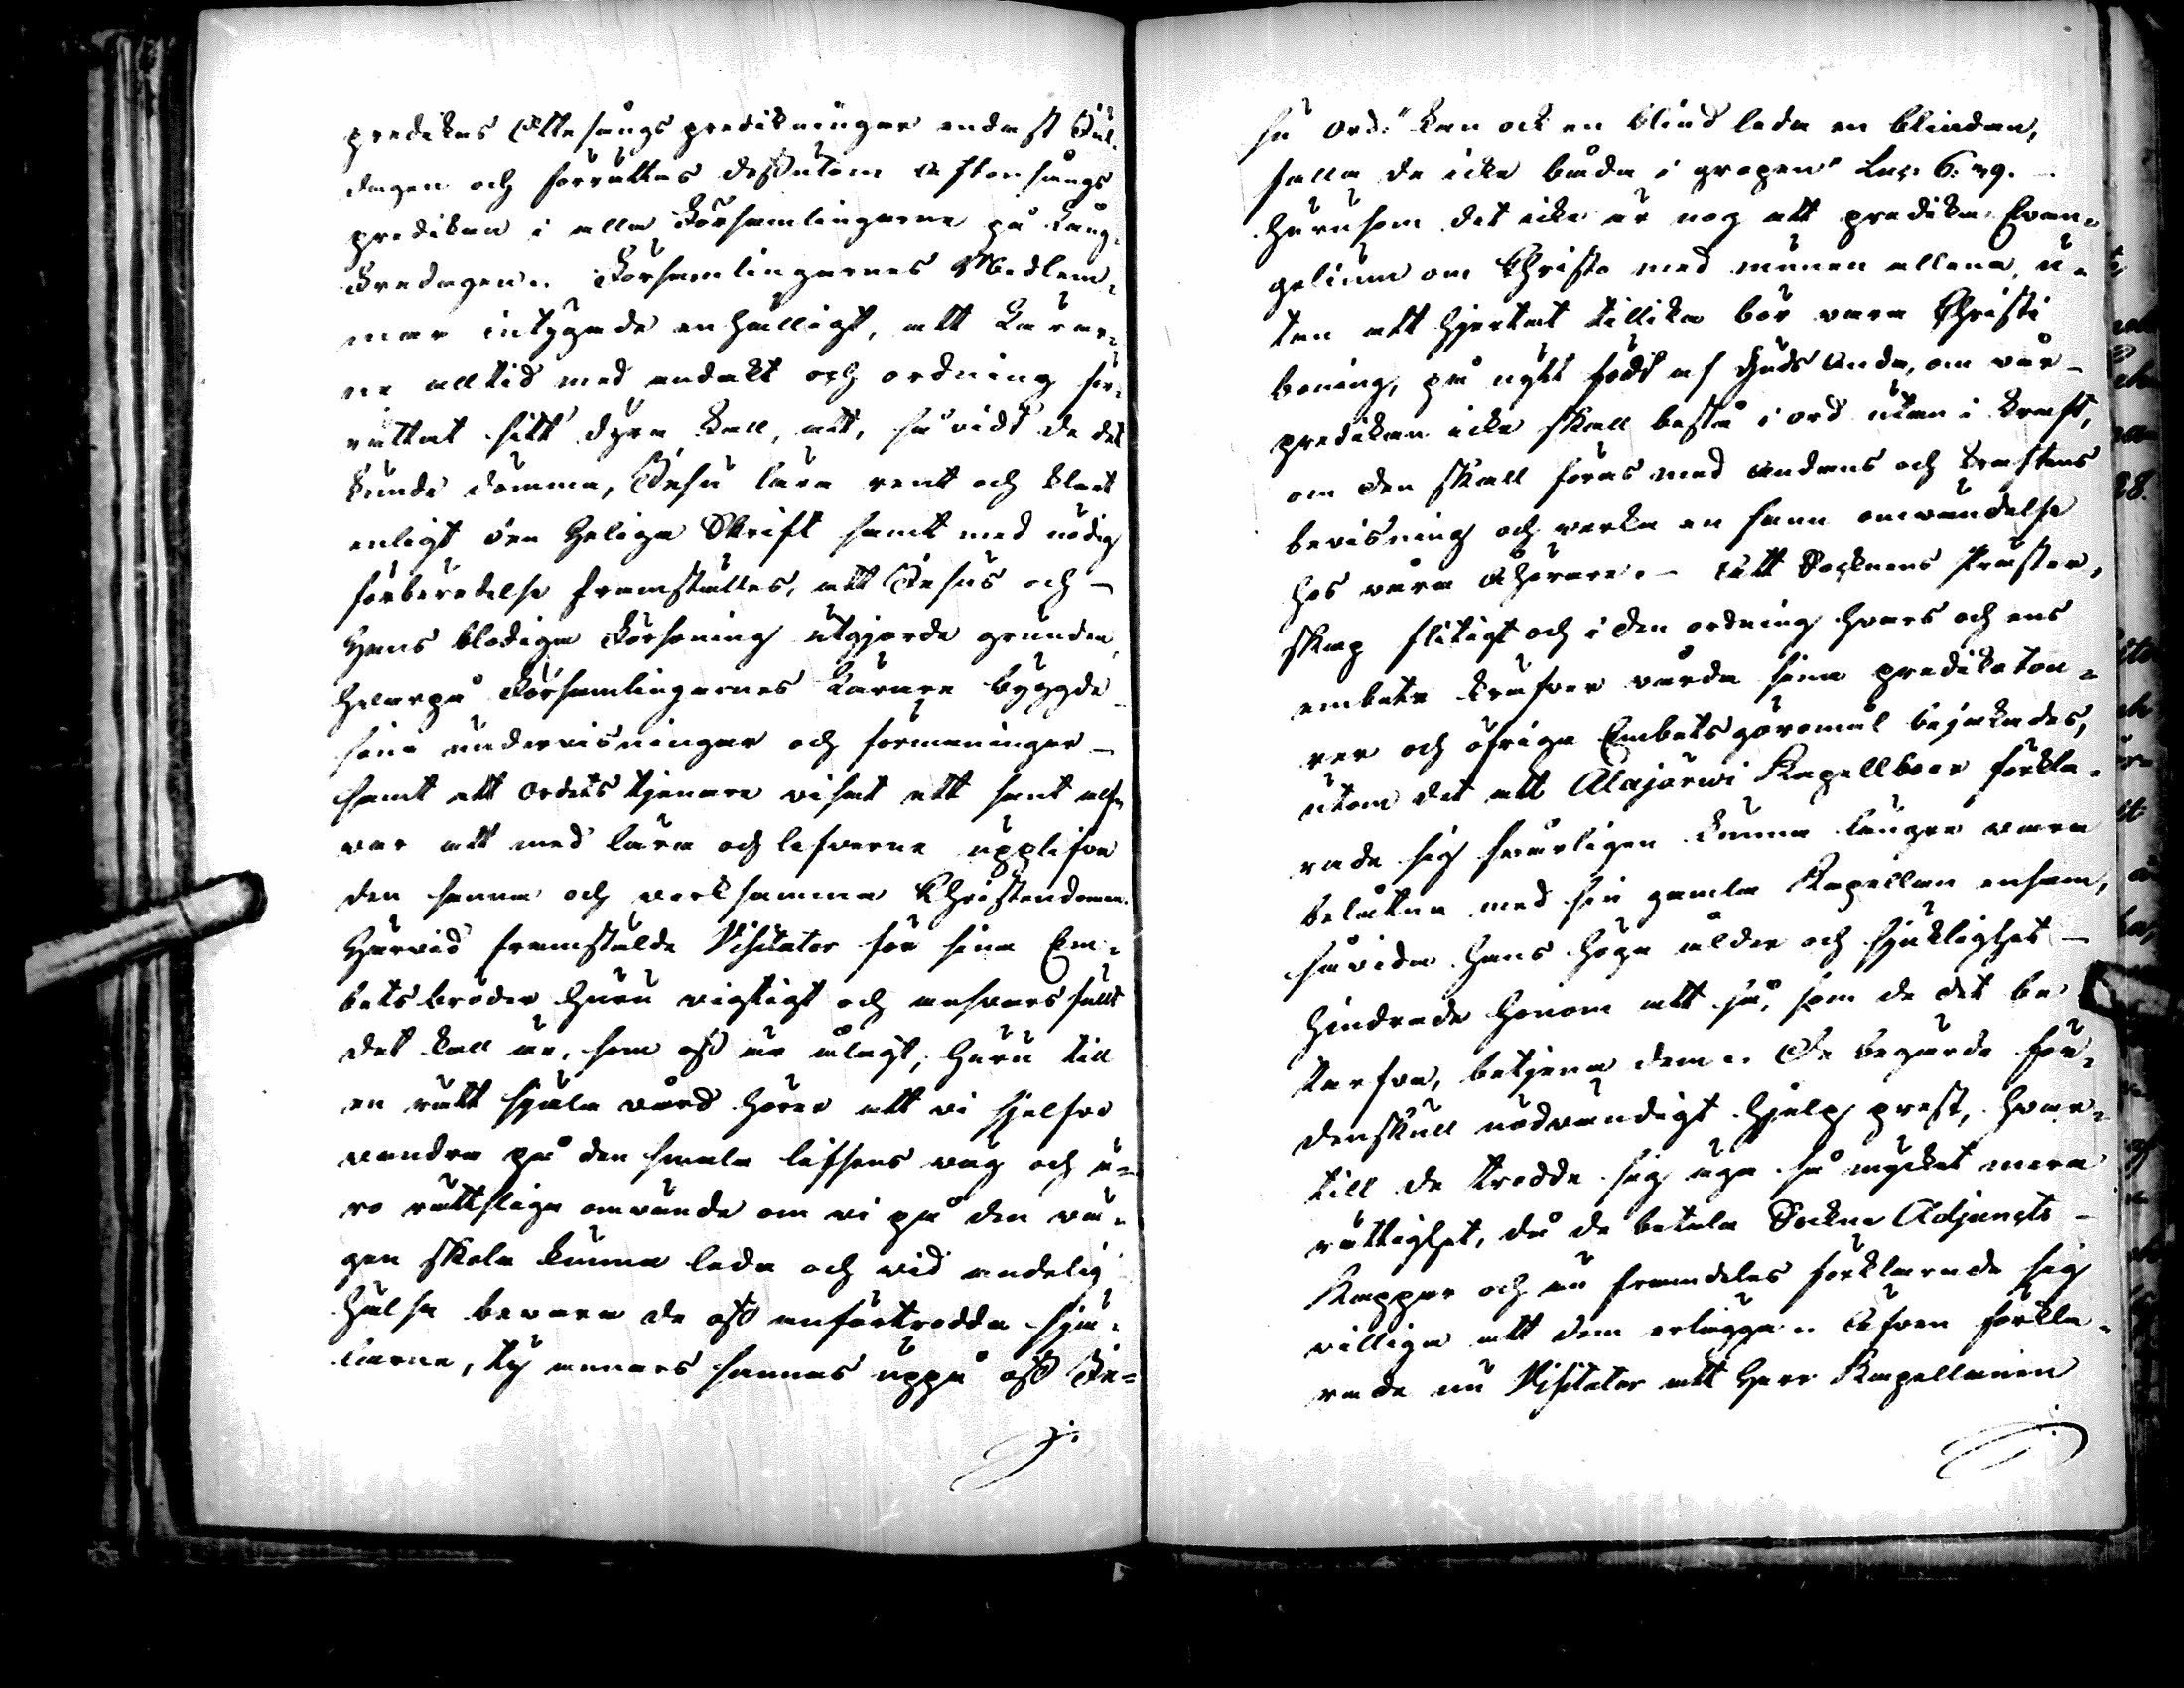 predikas Ottesångs predikningar endast Jul-
dagen och förrättas dessutom Aftonsångs
predikan i alla Församlingarne på Lång-
Fredagen. Församlingarnes Medlem-
mar intygade enhälligt, att Lärar-
ne alltid med andakt och ordning för-
rättat sitt dyra kall, att, så vidt de det
kunde dömma, Jesu lära rent och klart
enligt den Heliga Skrift samt med nödig
förberedelse framställes, att Jesus och
Hans blodiga Försoning utgjorde grunden,
hvarpå Församlingarnes Lärare byggde
sina undervisningar och förmaningar
samt att Ordets tjenare visat ett sant alf-
var att med lära och lefverne upplifva
den sanna och verksamma Christendomen.
Härvid framstälde Visitator för sina Em-
betsbröder huru vigtigt och ansvarsfullt
det kall är, som oss är ålagt, huru till
en rätt själavård hörer att vi sjelfve
vandra på den smala lifsens väg och ä-
ro rättsliga omvände om vi på den vä-
gen skola kunna leda och vid andelig
hälsa bevara de oss anförtrodda sjä-
larne, ty annars sannas uppå oss Je-
su Ord: "Kan ock en blind leda en blindan,
falla de icke båda i gropen" Luc. 6: 39. –
Hurusom det icke är nog att predika Evan-
gelium om Christo med munen allena, u-
tan att hjertat tillika bör vara Christi
boning, på nytt född af Guds Anda, om vår
predikan icke skall bestå i ord utan i kraft,
om den skall föras med Andans och kraftens
bevisning och verka en sann omvändelse
hos våra Åhörare. – Att Socknens Präster-
skap flitigt och i den ordning hvars och ens
embete kräfver vårda sina predikoton-
rer och öfriga Embetsgöromål bejakades,
utom det att Alajärwi Kapellboer förkla-
rade sig svårligen kunna längre vara
belåtna med sin gamla Kapellan ensam,
såvida hans höga ålder och sjuklighet
hindrade honom att så, som de det be-
tarfva, betjena dem. De begärde för-
denskull nödvändigt hjelpprest, hvar-
till de trodde sig äga så mycket mera
rättighet, då de betala Sockne Adjuncts
Kappar och än framdeles förklarade sig
villiga att dem erlägga. Äfven förkla-
rade nu Visitator att Herr Kapellanen